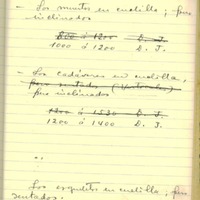 - Los muertos en cuclilla, pero
inclinados
800 á 1200 D. J.
1000 á 1200 D. J.
- Los cadáveres en cuclilla,
pero sentados
pero inclinados
1200 á 1530 D. J.
1200 á 1400 D. J.
..
Los esqueletos en cuclilla, pero
sentados: